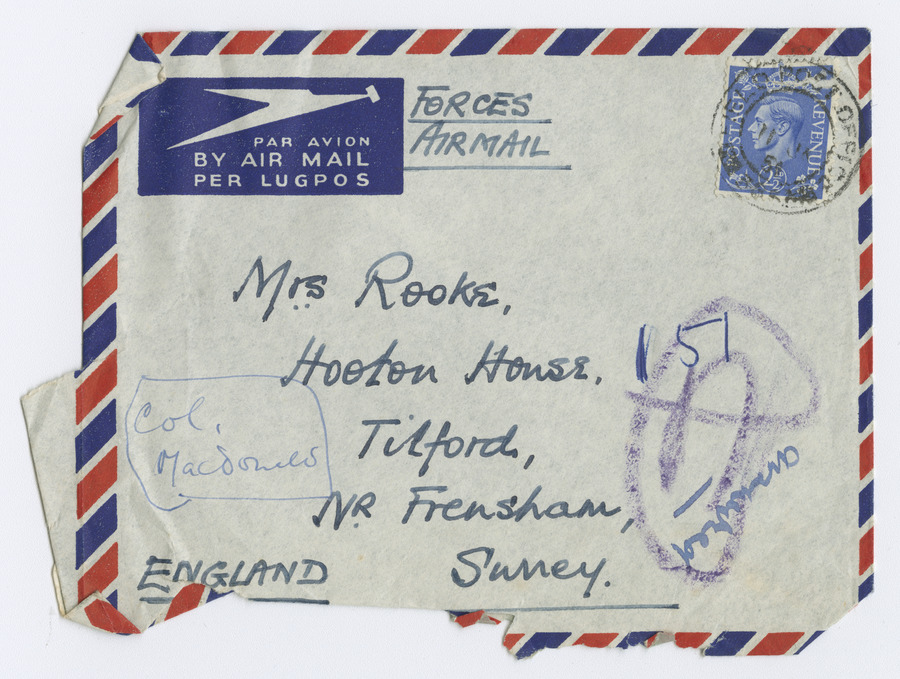 PAR AVION
BY AIR MAIL
PER LUGPOS
FORCES
AIRMAIL
POSTAGE REVENUE
2½D
POST OFFICE
Mrs Rooke,
Hooton House,
Tilford,
Nr Frensham,
Surrey.
ENGLAND
Col.
MacDonald
151
answered